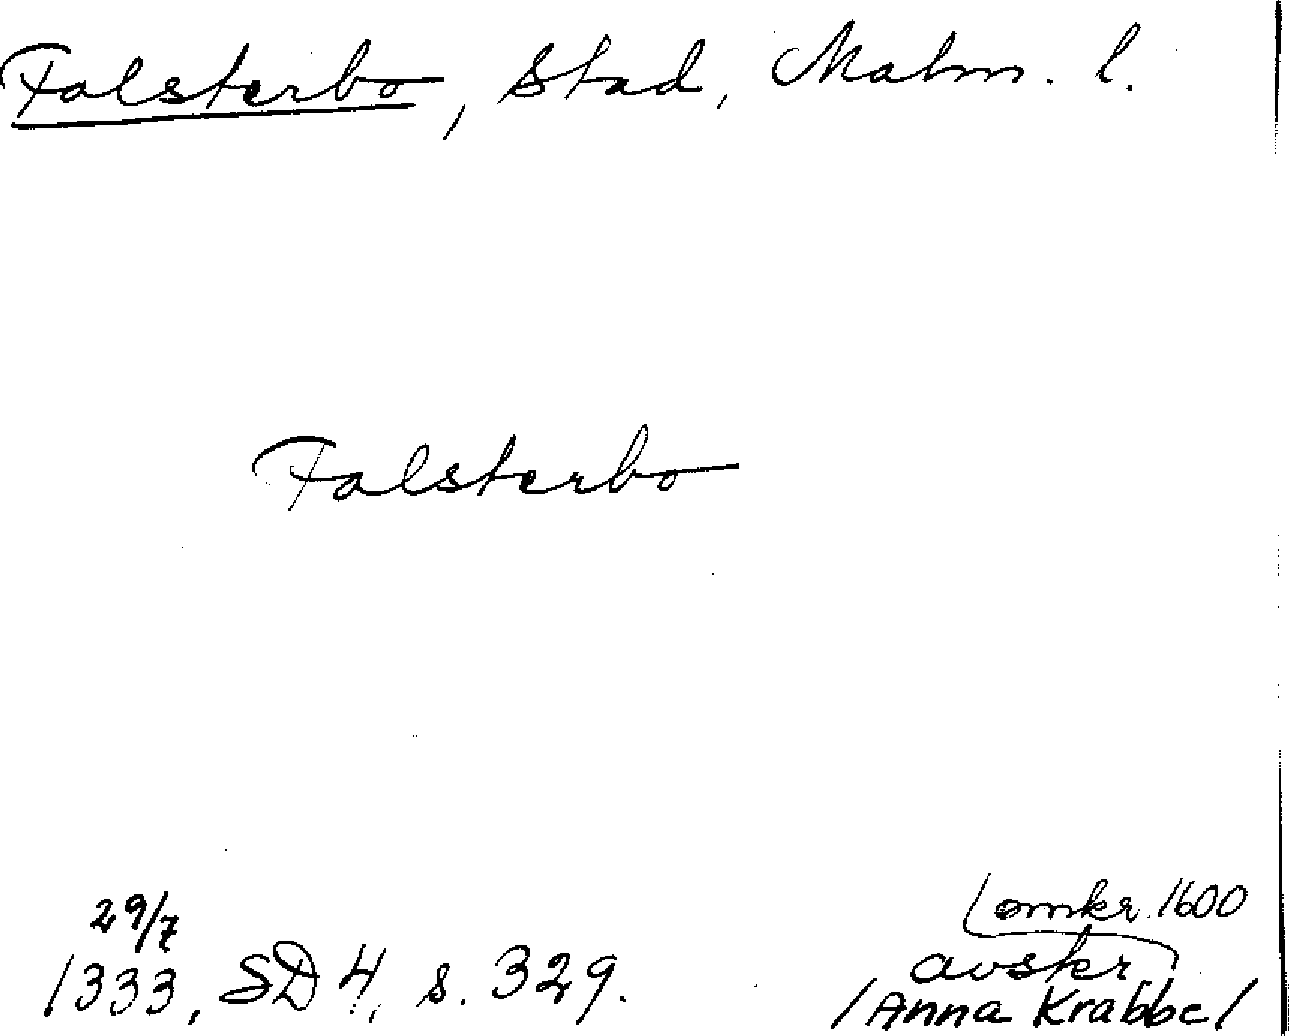 Falsterbo, Stad, Malm. l.
Falsterbo
29/7
1333, SD 4, s. 329.
omkr. 1600
avskr.
/Anna Krabbe/